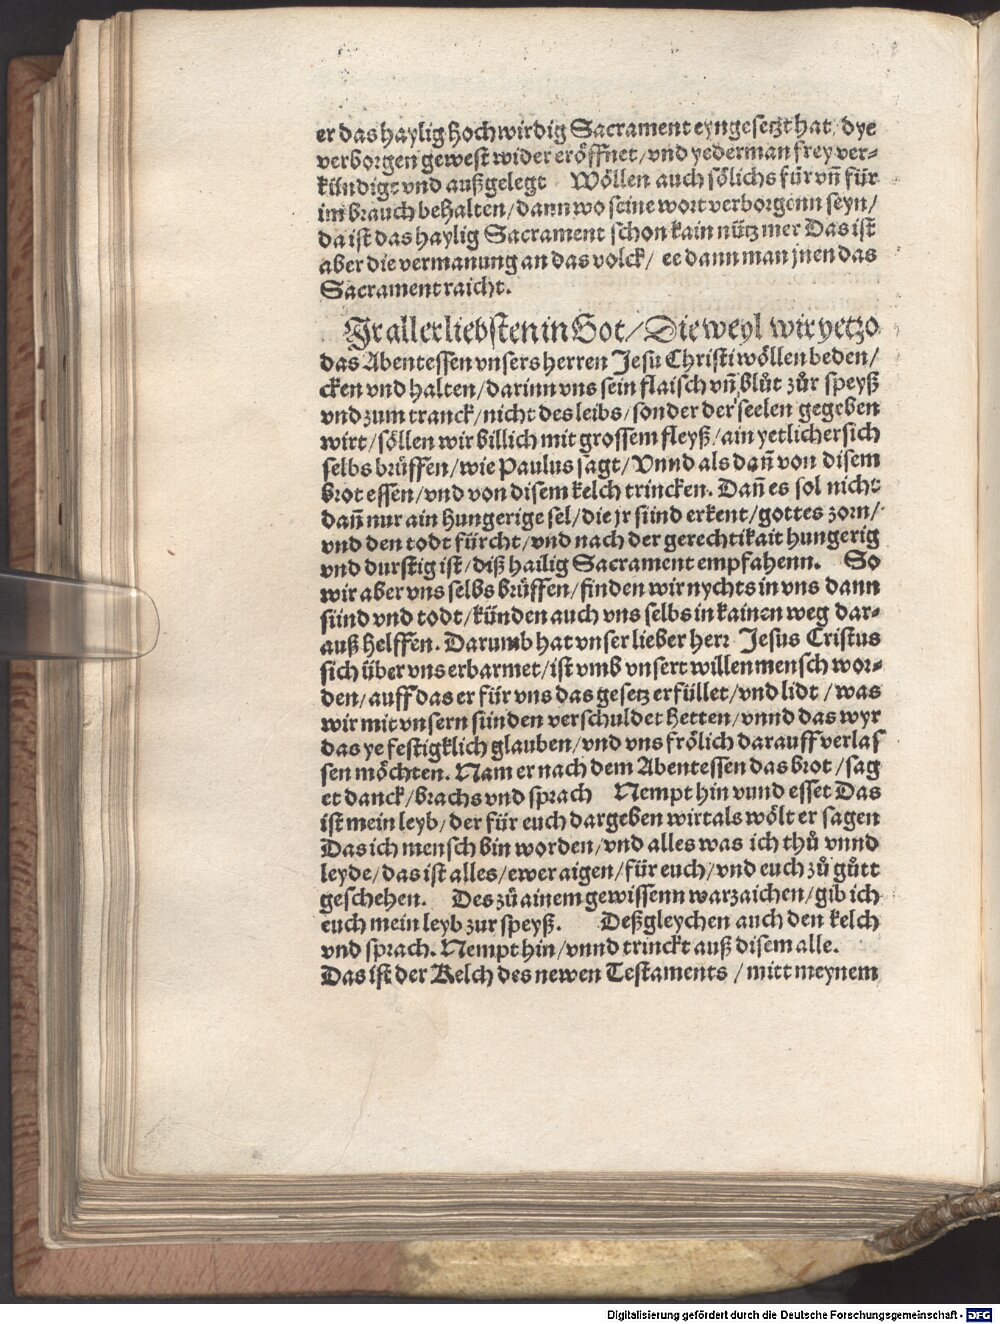 er das haylig hochwirdig Sacrament eyngesetzt hat, dye
verborgen gewest wider eröffnet/ vnd yederman frey ver-
kündigt vnd außgelegt Wöllen auch sölichs für vñ für
im brauch behalten/ dann wo seine wort verborgenn seyn/
da ist das haylig Sacrament schon kain nütz mer Das ist
aber die vermanung an das volck/ ee dann man jnen das
Sacrament raicht.
Ir allerliebsten in Got/ Die weyl wir yetzo
das Abentessen vnsers herren Jesu Christi wöllen beden/
cken vnd halten/ darinn vns sein flaisch vñ blůt zůr speyß
vnd zum tranck/ nicht des leibs/ sonder der seelen gegeben
wirt/ söllen wir billich mit grossem fleyß/ ain yetlicher sich
selbs brüffen/ wie Paulus sagt/ Vnnd als dañ von disem
brot essen/ vnd von disem kelch trincken. Dañ es sol nicht
dañ nur ain hungerige sel/ die jr sünd erkent/ gottes zorn/
vnd den todt fürcht/ vnd nach der gerechtikait hungerig
vnd durstig ist/ diß hailig Sacrament empfahenn. So
wir aber vns selbs brüffen/ finden wir nychts in vns dann
sünd vnd todt/ künden auch vns selbs in kainen weg dar-
auß helffen. Darumb hat vnser lieber herr Jesus Cristus
sich über vns erbarmet/ ist vmb vnsert willen mensch wor-
den/ auff das er für vns das gesetz erfüllet/ vnd lidt / was
wir mit vnsern sünden verschuldet hetten/ vnnd das wyr
das ye festigklich glauben/ vnd vns frölich darauff verlas
sen möchten. Nam er nach dem Abentessen das brot / sag
et danck/ brachs vnd sprach Nempt hin vund esset Das
ist mein leyb/ der für euch dargeben wirt als wölt er sagen
Das ich mensch bin worden/ vnd alles was ich thů vnnd
leyde/ das ist alles/ ewer aigen/ für euch/ vnd euch zů gůtt
geschehen. Des zů ainem gewissenn warzaichen/ gib ich
euch mein leyb zur speyß. Deßgleychen auch den kelch
vnd sprach. Nempt hin/ vnnd trinckt auß disem alle.
Das ist der Kelch des newen Testaments / mitt meynem
Digitalisierung gefördert durch die Deutsche Forschungsgemeinschaft - DFG